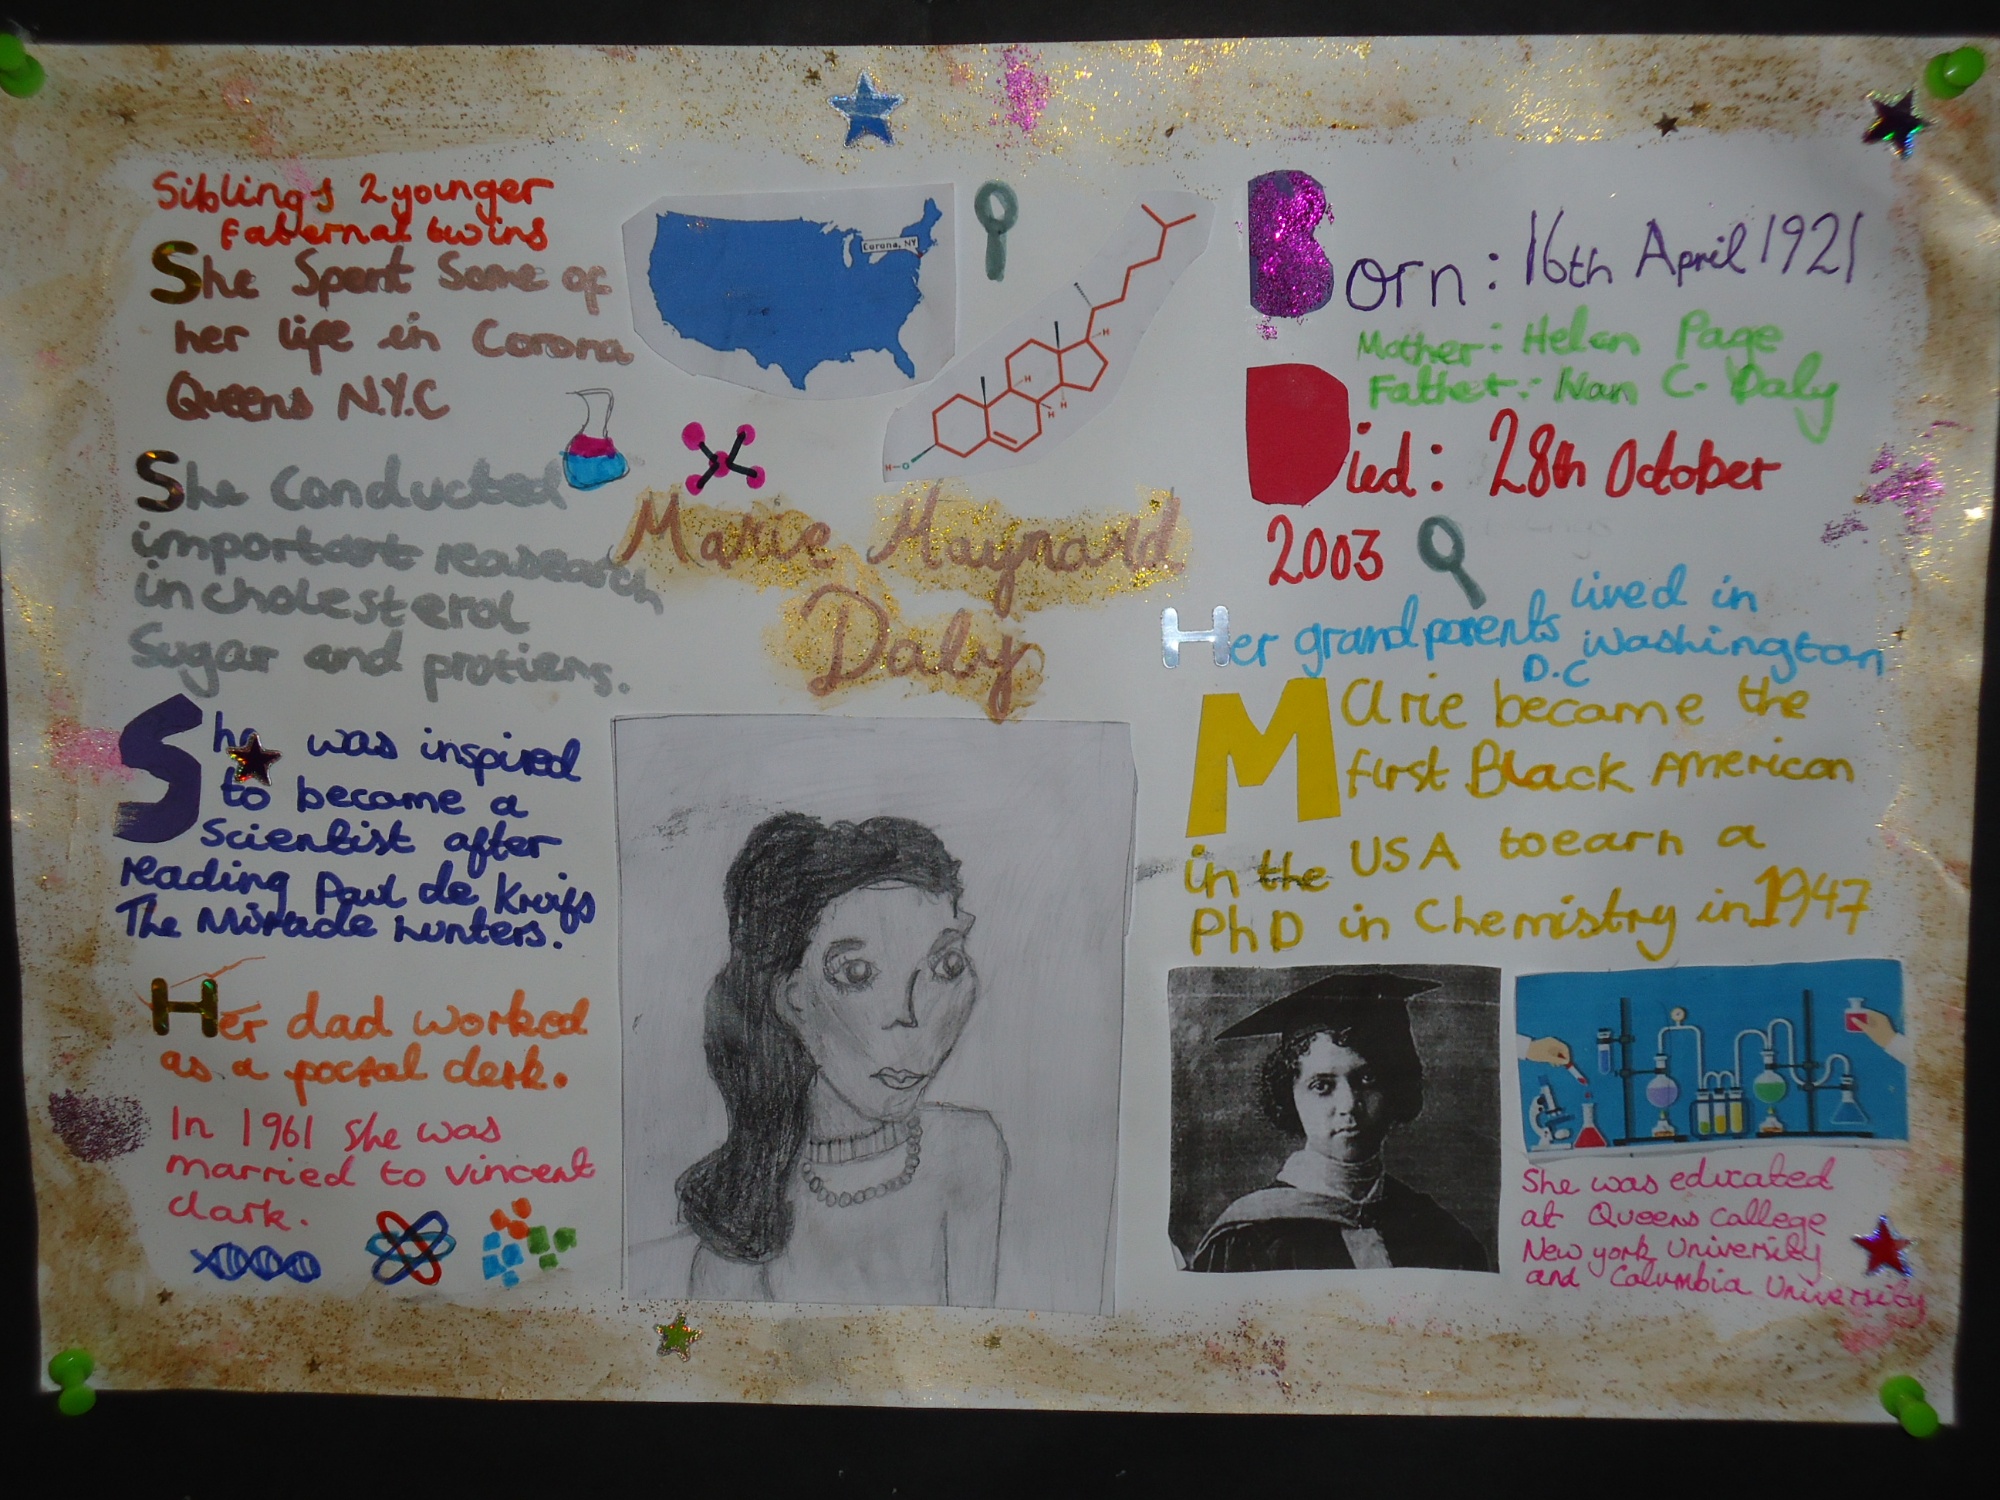 Siblings 2 younger
fabernal twins
She Spent Some of
her life in Corona
Queens N.Y.C
She Conducted
important reasearch
in cholesterol
Sugar and protiens.
She was inspired
to become a
Scientist after
reading Paul de Kruifs
The Miracle hunters.
Her dad worked
as a postal clerk.
In 1961 she was
married to vincent
clark.
Corona, NY
H
H
H
H
H-O
Marie Maynard
Daly
Born: 16th April 1921
Mother: Helen Page
Father: Ivan C. Daly
Died: 28th October
2003
Her grandparents lived in
Washington
D.C
Marie became the
first Black American
in the USA to earn a
PhD in Chemistry in 1947
She was educated
at Queens College
New york University
and Columbia University